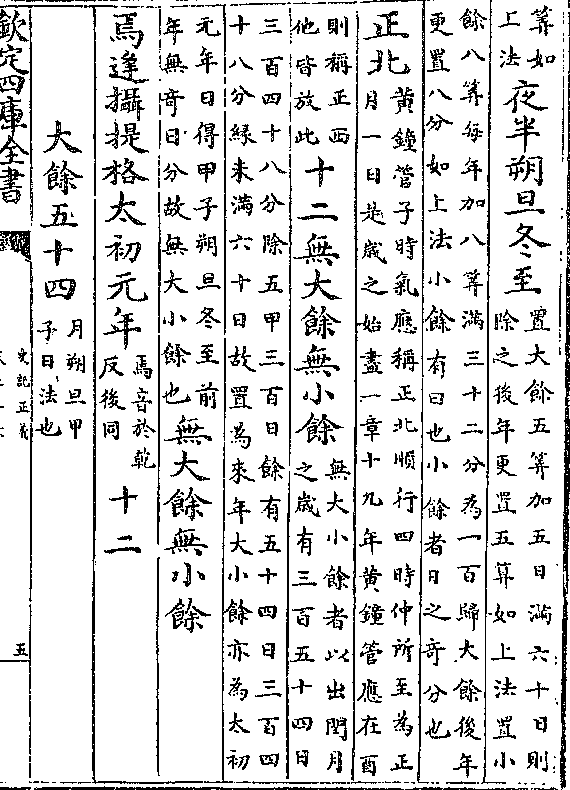 算如
上法
夜半朔旦冬至
置大餘五算加五日滿六十日則
除之後年更置五算如上法置小
餘八算每年加八算滿三十二分為一百歸大餘後年
更置八分如上法小餘有曰也小餘者日之奇分也
正北
黃鐘管子時氣應稱正北順行四時仲所至為正
月一日是歲之始盡一章十九年黃鐘管應在酉
則稱正西
他皆放此
十二無大餘無小餘
無大小餘者以出閏月
之歲有三百五十四日
三百四十八分除五甲三百日餘有五十四日三百四
十八分緣未滿六十日故置為來年大小餘亦為太初
元年日得甲子朔旦冬至前
年無奇日分故無大小餘也
無大餘無小餘
焉逢攝提格太初元年
焉音於乾
反後同
十二
大餘五十四
月朔旦甲
子日法也
欽定四庫全書
史記正義
五